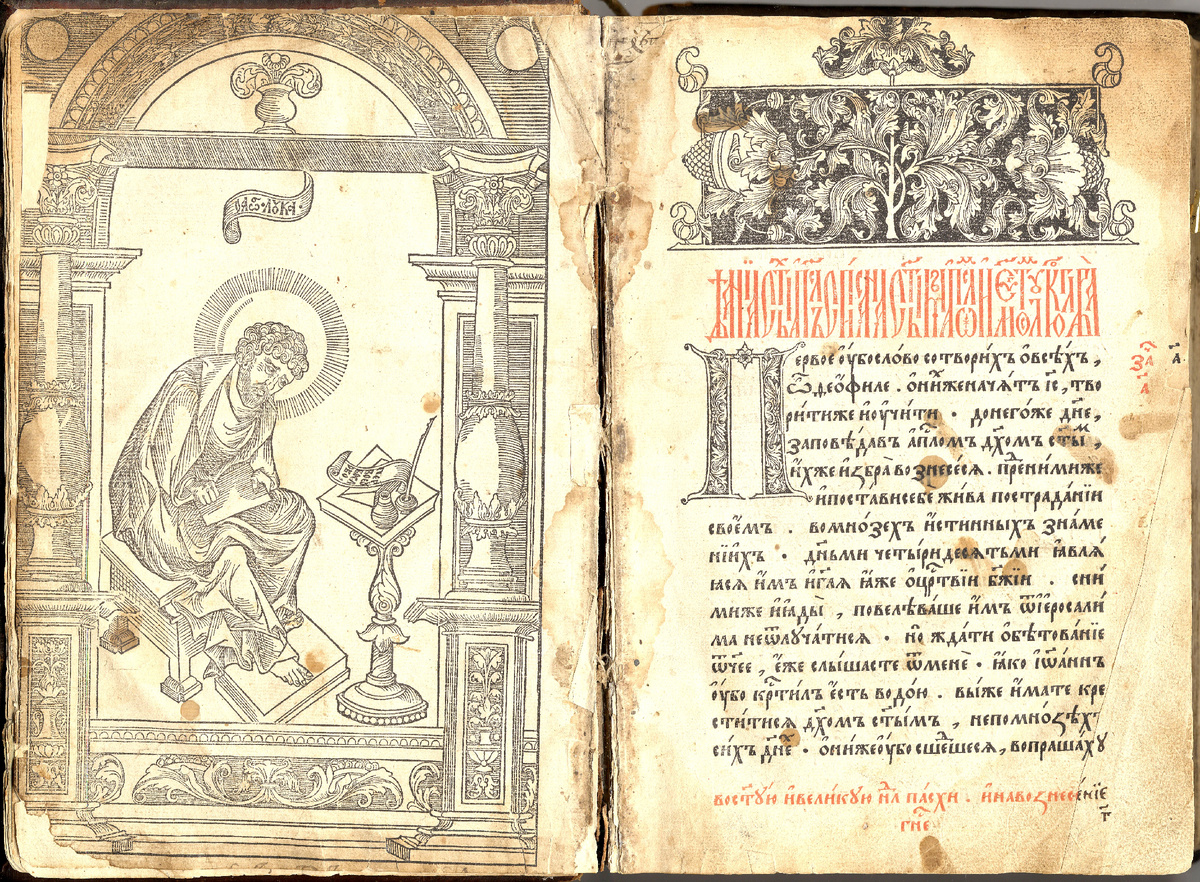 ст҃ъ · лꙋка ·
Первое ᲂу҆бо сло́во сотвори́хъ ѡ҆ всѣ́хъ ,
ѽ део́филе . ѡ҆ ни́хже начѧ́тъ і҆с҃ , тво
ри́ти же и҆ ᲂу҆чи́ти · до него́же дн҃е ,
заповѣ́давъ а҆пⷭ҇ломъ дх҃омъ ст҃ыⷨ ,
и҆́хже и҆збра̀ вознесе́сѧ . пре́ⷣ ни́миже
и҆ поста́ви себѐ жи́ва по страда́нїи
свое́мъ . во мно́зѣхъ и҆́стинныхъ зна́ме
нїи҆хъ · дн҃ьми четы́ридесѧтьми ꙗ҆влѧ́
ꙗсѧ и҆́мъ и҆ гл҃ѧ ꙗ҆́же ѡ҆ црⷭ҇твїи бж҃їи . сни́
миже и҆ ꙗ҆ды̀ , повелѣва́ше и҆́мъ ѿ і҆еросали́
ма не ѿлꙋча́тисѧ · но̀ жда́ти ѡ҆бѣтова́нїе
ѿч҃ее , є҆́же слы́шасте ѿ менѐ · ꙗ҆́ко і҆ѡ҆а́ннъ
ᲂу҆́бо крⷭ҇ти́лъ є҆́сть водо́ю . вы́же и҆́мате кре
сти́тисѧ дх҃омъ ст҃ы́мъ , не по мно́зѣхъ
си́хъ дн҃еⷯ · ѻ҆ни́же ᲂу҆́бо сше́дшесѧ , вопраша́хꙋ
за҄ а҃
а҃
в ост҃ꙋ́ю и҆ вели́кꙋю нⷣлю па́схи . и҆ на вознесе́нїе
гн҃е